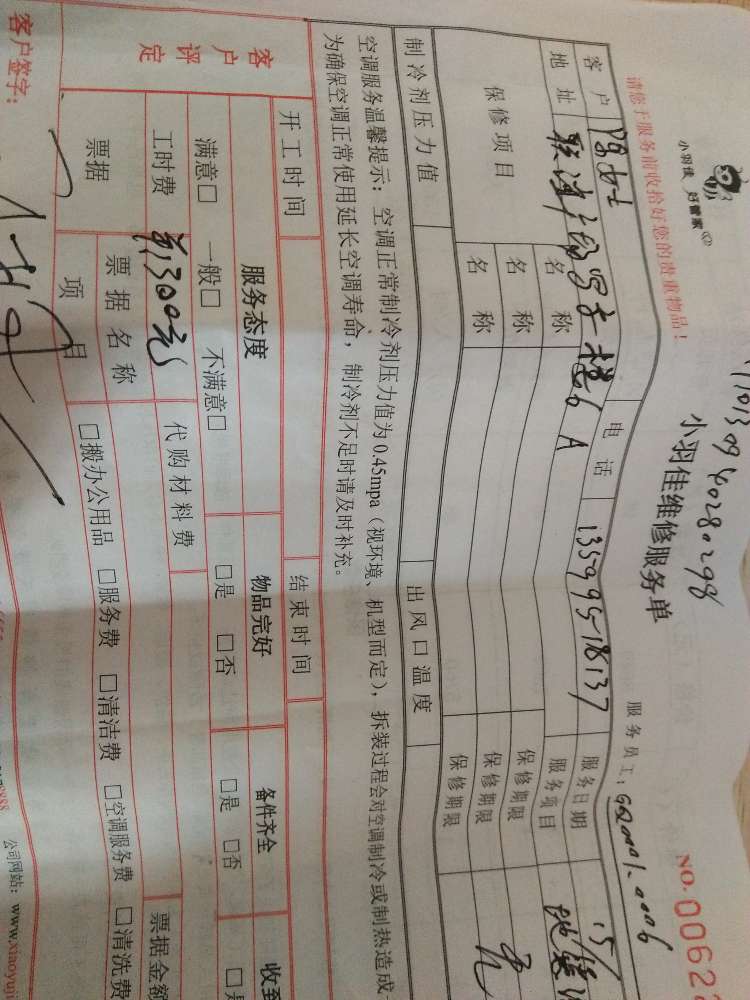 110130940280298
小羽佳 好管家
小羽佳维修服务单
NO.0062
请您于服务前收拾好您的贵重物品！
服务员工：
客户
电话 13599518137
服务日期
地址
服务项目
保修项目
名称
保修期限
名称
保修期限
名称
保修期限
制冷剂压力值
出风口温度
空调服务温馨提示：空调正常制冷剂压力值为0.45mpa（视环境、机型而定），拆装过程会对空调制冷或制热造成
为确保空调正常使用延长空调寿命，制冷剂不足时请及时补充。
开工时间
结束时间
客户评定
服务态度
物品完好
备件齐全
收到
满意□ 一般□ 不满意□
□是 □否
□是 □否
工时费
300元
代购材料费
票据
票据名称
票据金额
项目
□搬办公用品 □服务费 □清洁费 □空调服务费 □清洗费
客户签字：
公司网站：www.xiaoyuji